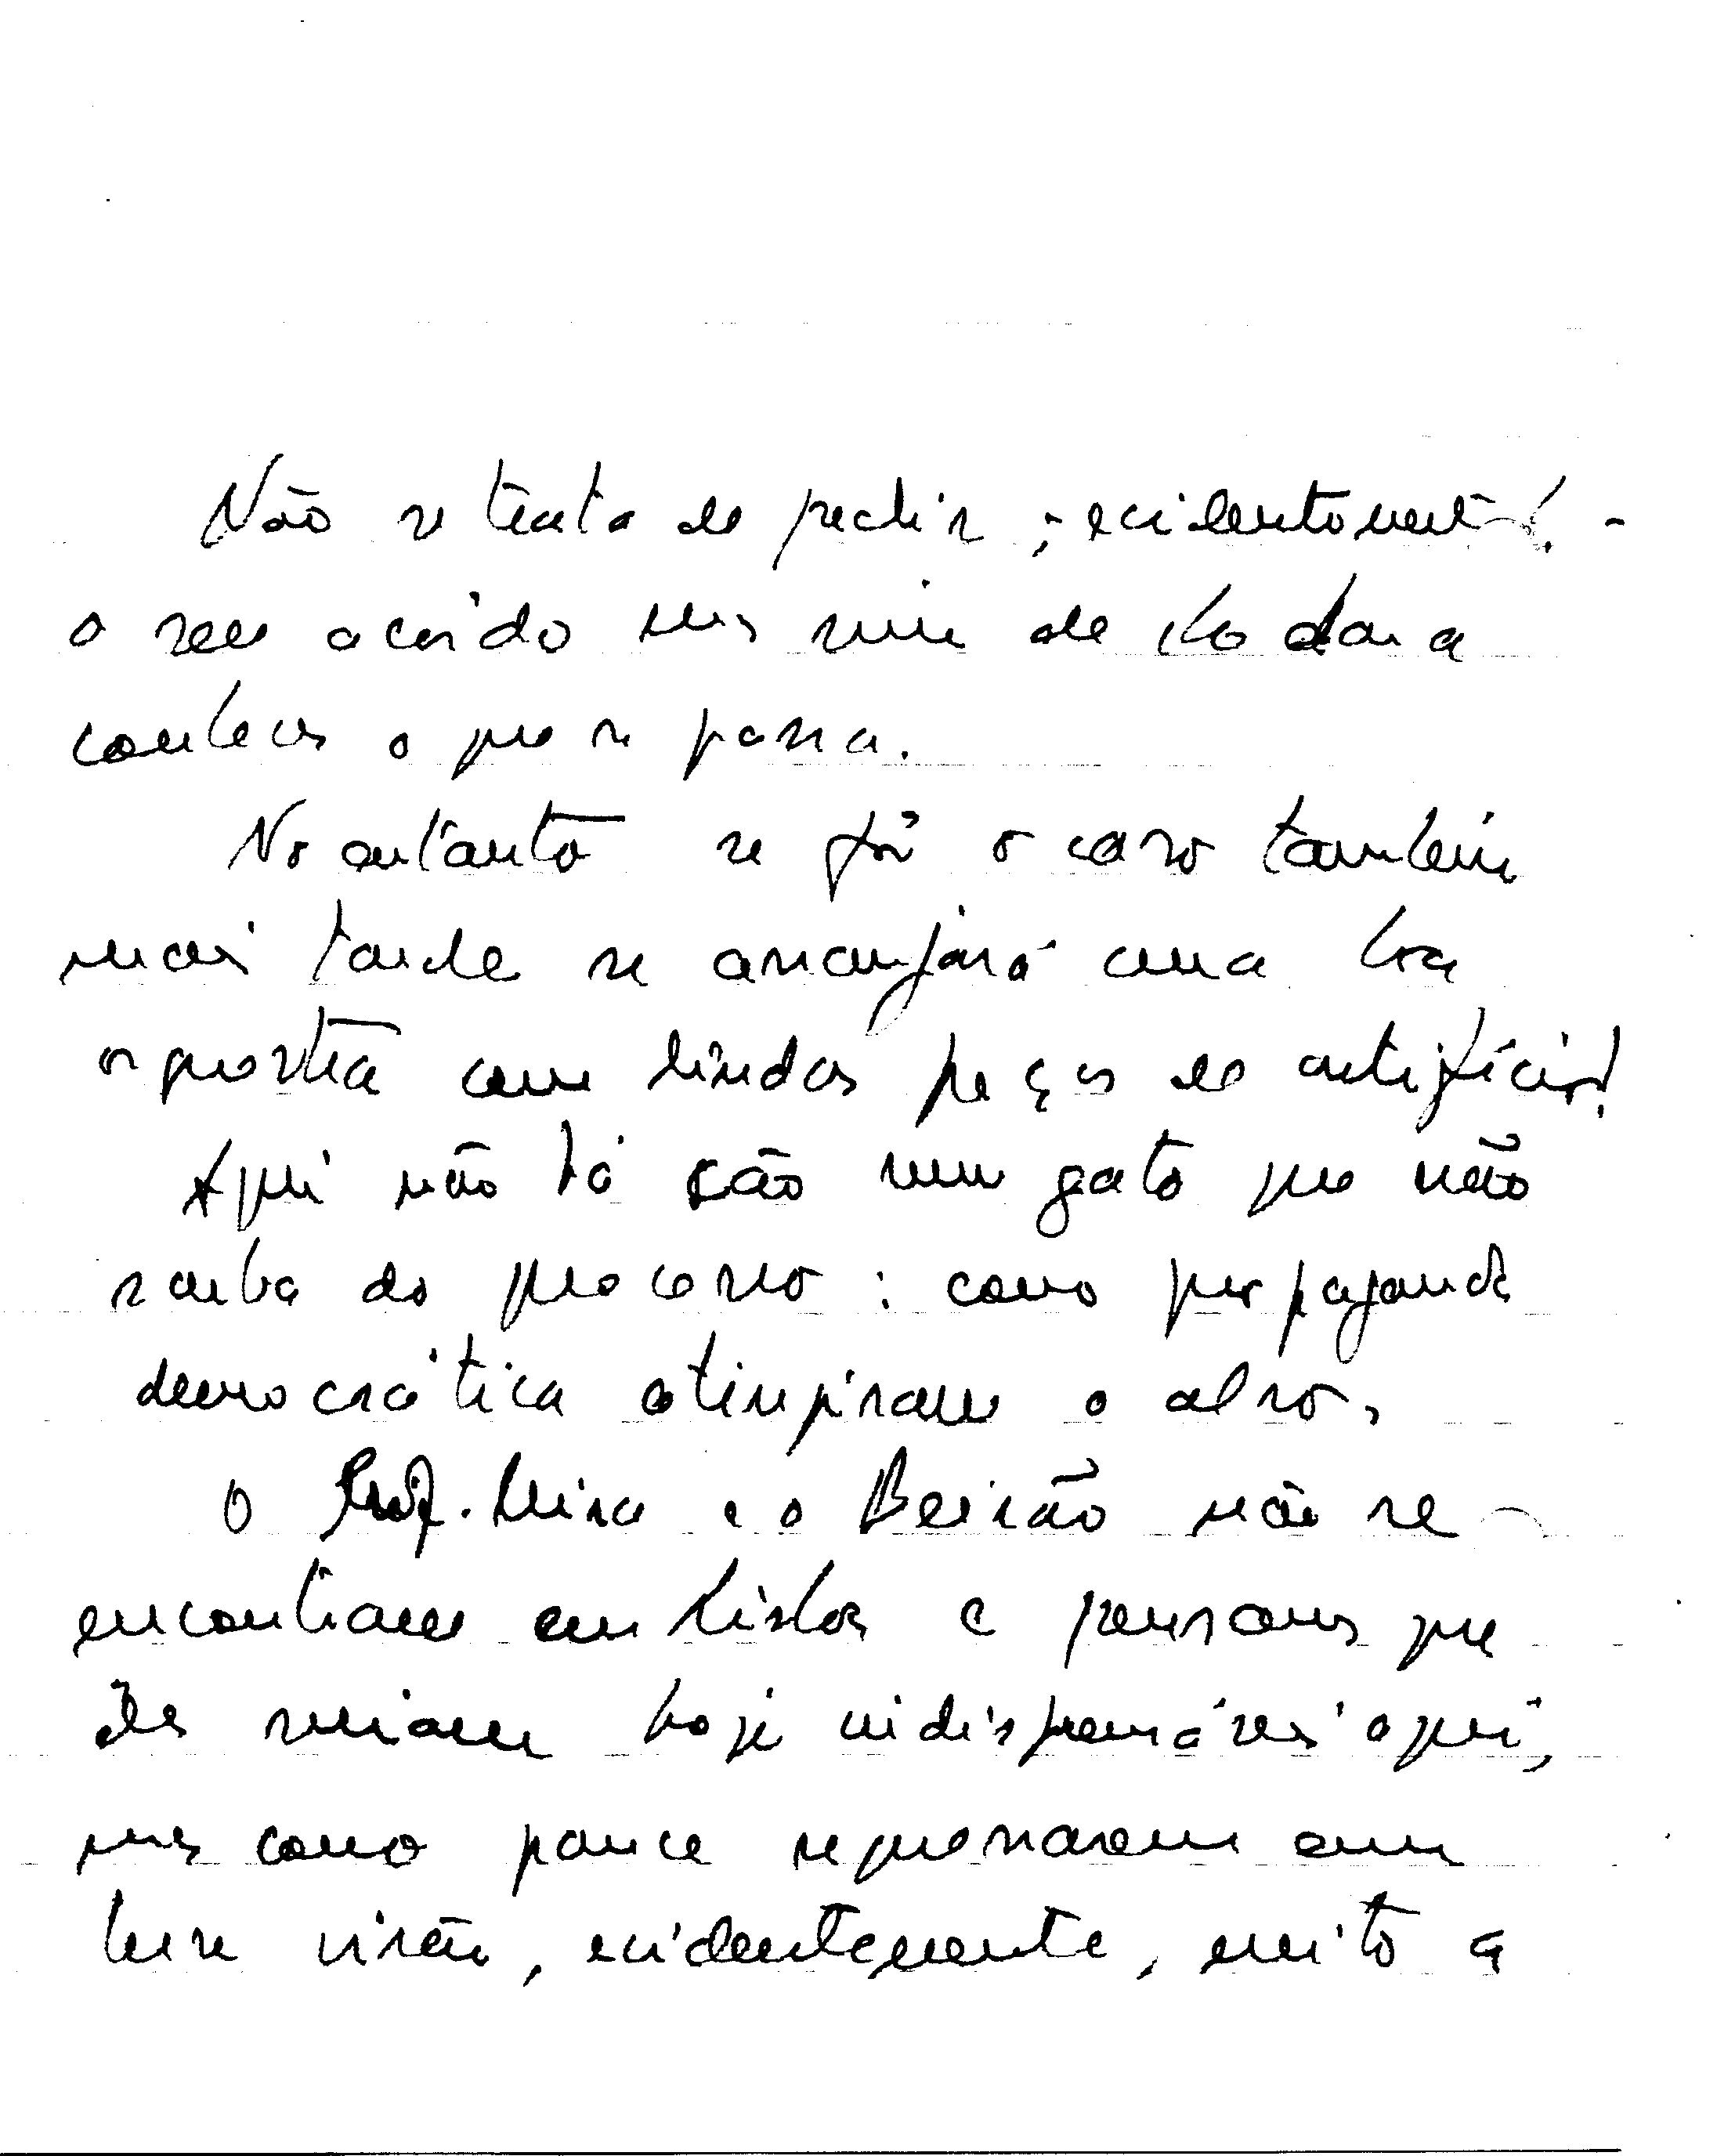 Não se trata de pedir, - evidentemente! -
o seu acordo mas sim de lho dar a
conhecer o que se passa.
No entanto se fôr o caso também
mais tarde se arranjará uma boa
orquestra com lindas peças de artifício!
Aqui não há cão nem gato que não
saiba do processo: como propaganda
democrática atingiram o alvo.
O Prof. Mira e o Beirão não se
encontram em Lisboa e pensam que
eles seriam hoje indispensáveis aqui,
mas como parece regressarem em
breve virão, evidentemente, muito a